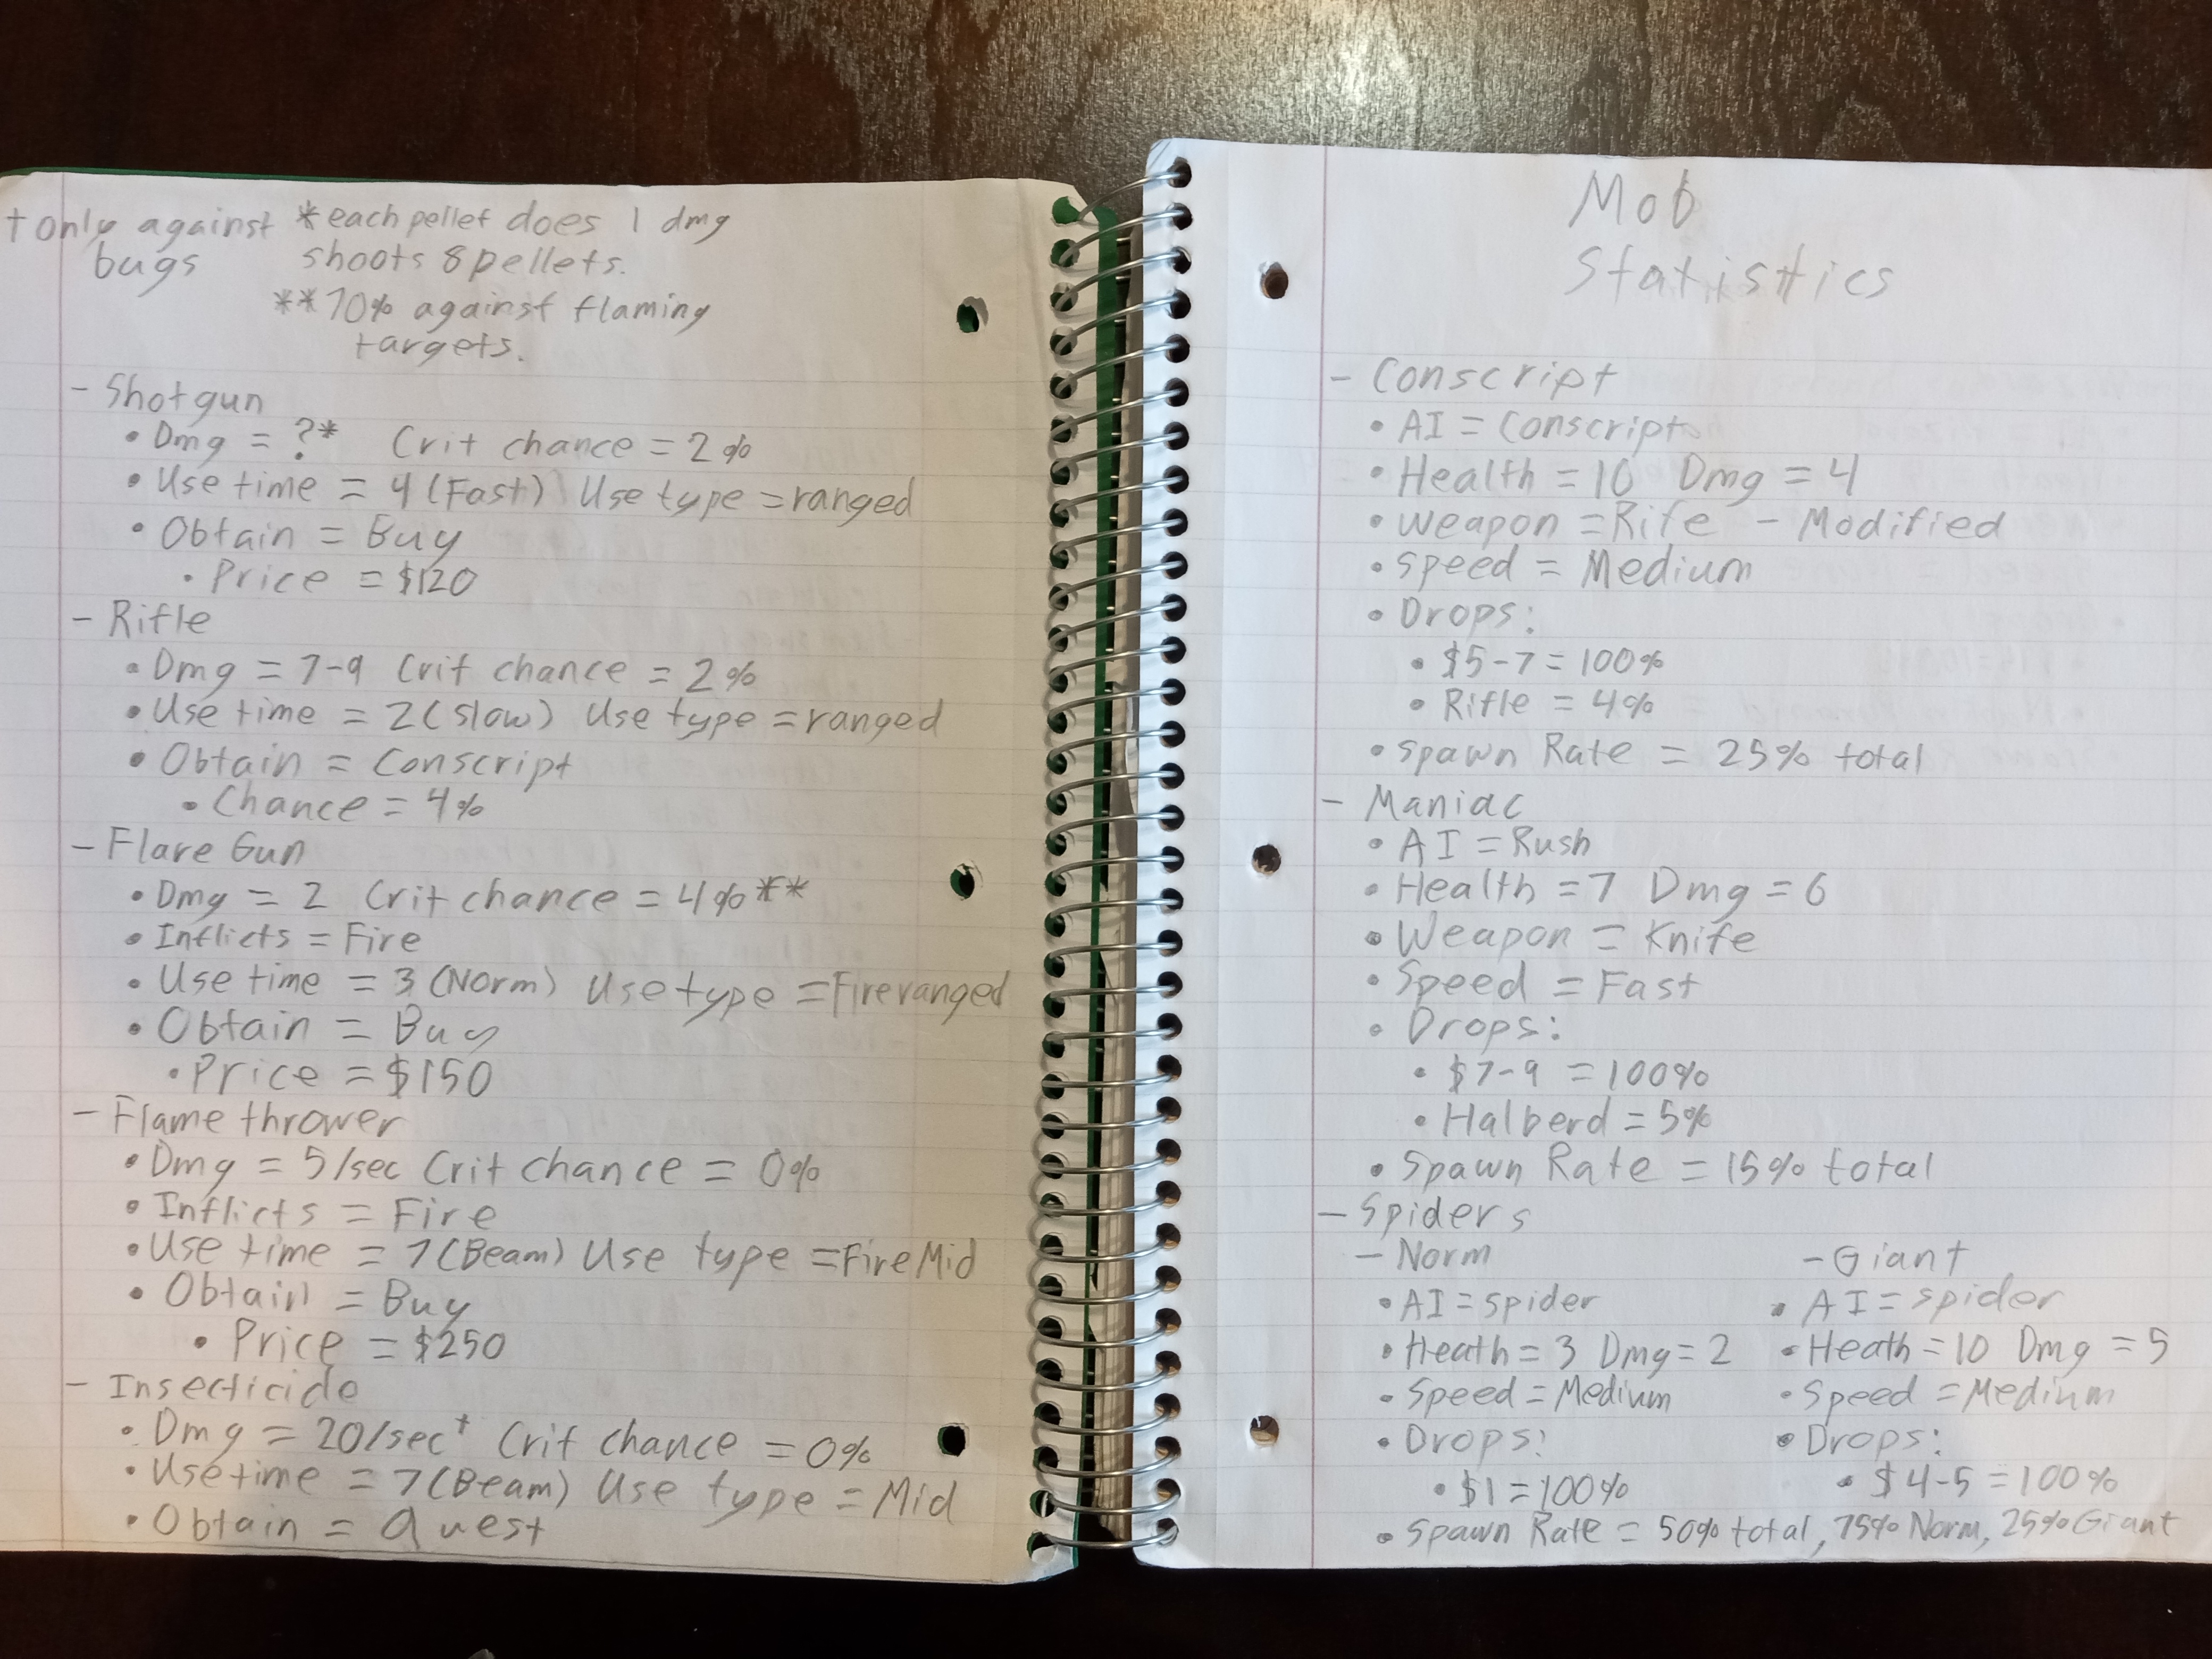 † only against
bugs
* each pellet does 1 dmg
shoots 8 pellets.
** 70% against flaming
targets.
- Shotgun
• Dmg = ?* Crit chance = 2%
• Use time = 4 (Fast) Use type = ranged
• Obtain = Buy
• Price = $120
- Rifle
• Dmg = 7-9 Crit chance = 2%
• Use time = 2 (Slow) Use type = ranged
• Obtain = Conscript
• Chance = 4%
- Flare Gun
• Dmg = 2 Crit chance = 4% **
• Inflicts = Fire
• Use time = 3 (Norm) Use type = Fire ranged
• Obtain = Buy
• Price = $150
- Flame thrower
• Dmg = 5/sec Crit chance = 0%
• Inflicts = Fire
• Use time = 7 (Beam) Use type = Fire Mid
• Obtain = Buy
• Price = $250
- Insecticide
• Dmg = 20/sec† Crit chance = 0%
• Use time = 7 (Beam) Use type = Mid
• Obtain = Quest
Mob
Statistics
- Conscript
• AI = Conscript
• Health = 10 Dmg = 4
• Weapon = Rife - Modified
• Speed = Medium
• Drops:
• $5-7 = 100%
• Rifle = 4%
• Spawn Rate = 25% total
- Maniac
• AI = Rush
• Health = 7 Dmg = 6
• Weapon = Knife
• Speed = Fast
• Drops:
• $7-9 = 100%
• Halberd = 5%
• Spawn Rate = 15% total
- Spiders
- Norm
• AI = spider
• Heath = 3 Dmg = 2
• Speed = Medium
• Drops:
• $1 = 100%
- Giant
• AI = spider
• Heath = 10 Dmg = 5
• Speed = Medium
• Drops:
• $4-5 = 100%
• Spawn Rate = 50% total, 75% Norm, 25% Giant